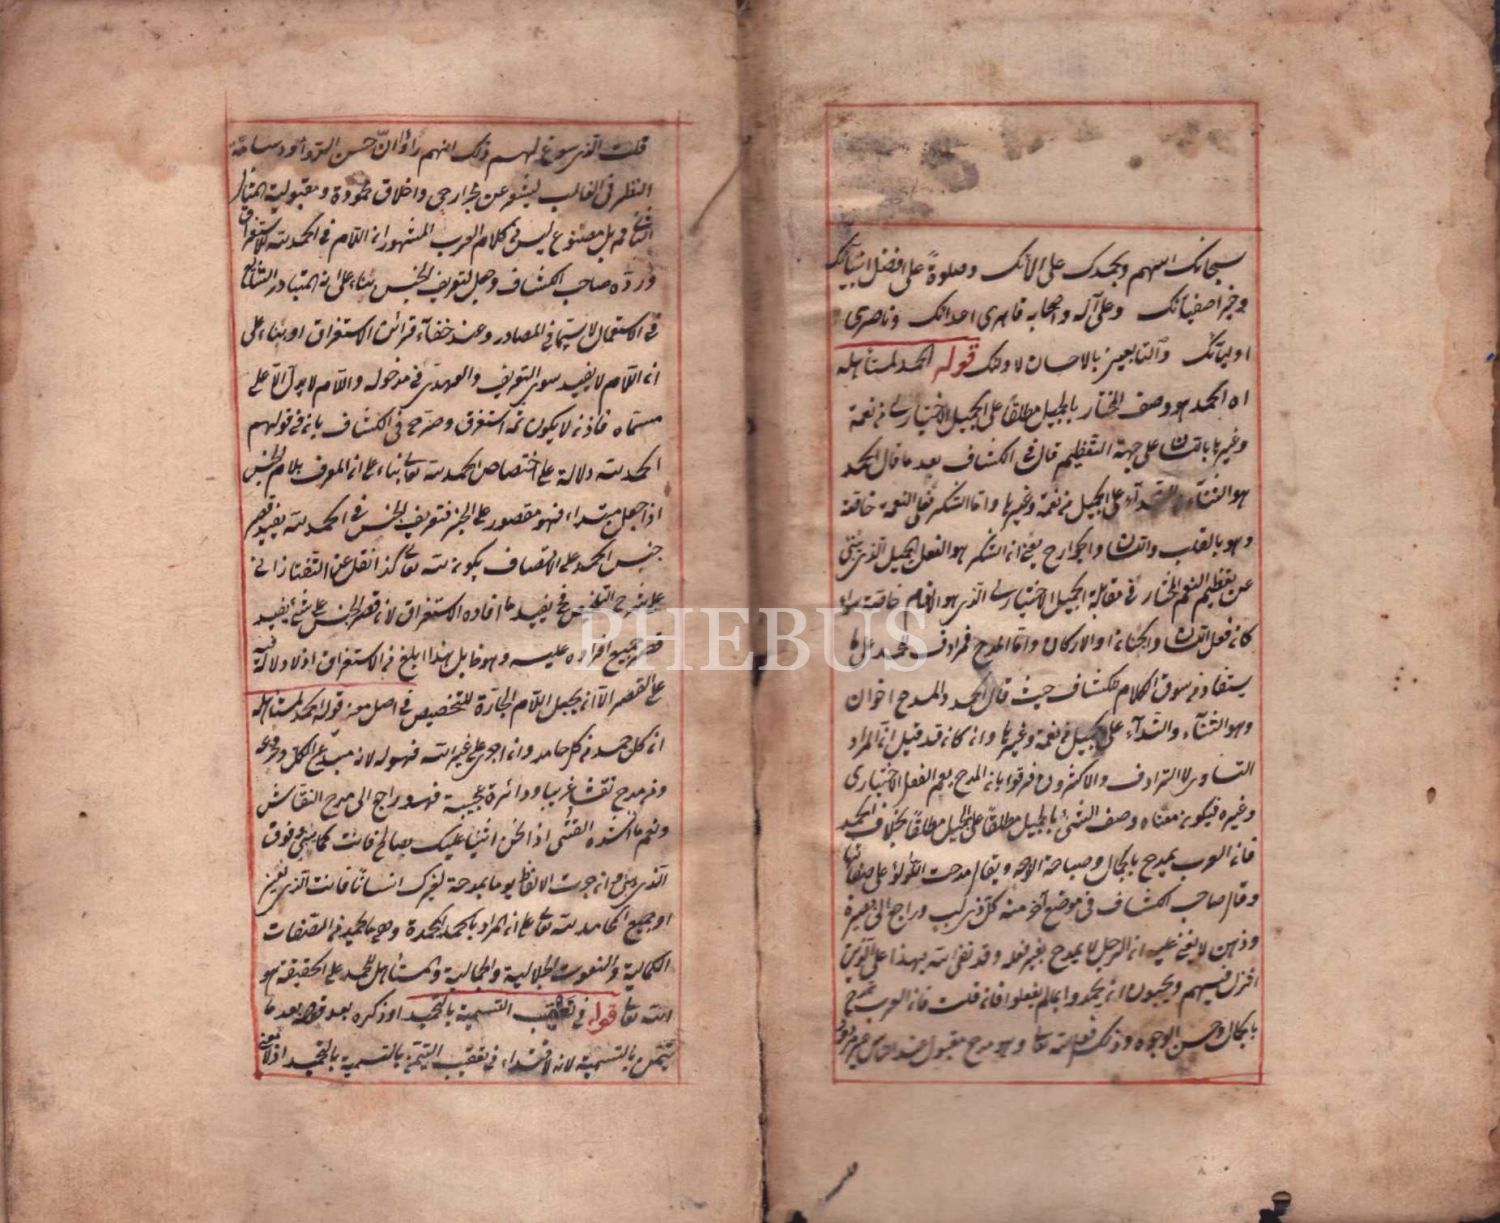 سبحانك اللهم وبحمدك على آلائك وصلوة على افضل انبيائك
وخير اصفيائك وعلى آله واصحابه قاهرى اعدائك وناصرى
اوليائك والتابعين بالاحسان لاولئك قوله الحمد لمستاهله
اه الحمد هو وصف المختار بالجميل مطلقا على الجميل الاختيارى من نعمة
وغيرها باللسان على جهة التعظيم قال فى الكشاف بعد ما قال الحمد
هو الثناء والنداء على الجميل من نعمة وغيرها واما الشكر فعلى النعمة خاصة
وهو بالقلب واللسان والجوارح يعنى ان الشكر هو الفعل الجميل الذى ينبئ
عن تعظيم المنعم المختار فى مقابلة الجميل الاختيارى الذى هو الانعام خاصة سواء
كان فعل اللسان والجنان او الاركان واما المدح فمرادف للحمد على ما
يستفاد من سوق الكلام الكشاف حيث قال الحمد والمدح اخوان
وهو الثناء والنداء على الجميل من نعمة وغيرها وان كان قد قيل ان المراد
التساوى لا الترادف والاكثرون فرقوا بان المدح يعم الفعل الاختيارى
وغيره فيكون معناه وصف الشئ بالجميل مطلقا على الجميل مطلقا بخلاف الحمد
فان العرب يمدح بالجمال وصباحة الوجه ويقال مدحت اللؤلؤ على صفائها
وقال صاحب الكشاف فى موضع آخر منه كل ذى لب وراجع الى بصيرة
وذهن لا يخفى عليه ان الرجل لا يمدح بغير فعله وقد نفى الله بهذا على الذين
انزل فيهم ويحبون ان يحمدوا بما لم يفعلوا فان قلت فان العرب يمدح
بالجمال وحسن الوجوه وذلك فعل الله تعالى وهو مدح مقبول عند الناس غير مردود
قلت الذى سوغ لهم ذلك انهم راوا ان حسن الرواء ووسامة
المنظر فى الغالب يسفر عن مخبر رضى واخلاق محمودة ومقبولية المثال
الثانى م بل مصنوع ليس فى كلام العرب المشهور ان اللام فى الحمد لله للاستغراق
ورده صاحب الكشاف وجعل لتعريف الجنس بناء على انه المتبادر الشائع
فى الاستعمال لا سيما فى المصادر وعند خفاء قرائن الاستغراق او بناء على
ان اللام لا يفيد سوى التعريف والعهدى فى مدخوله واللام لا يدل الا على
مسماه فاذن لا يكون ثمه استغراق وصرح فى الكشاف بان فى قولهم
الحمد لله دلالة على اختصاص الحمد لله تعالى بناء على ان المعرف بلام الجنس
اذا جعل مبتداء فهو مقصور على الخبر فتعريف الجنس فى الحمد لله يفيد قصر
جنس الحمد على الاتصاف بكونه لله تعالى كذا نقل عن التفتازانى
على شرح التلخيص فيفيد ما افاده الاستغراق لان قصر الجنس على شئ يفيد
قصر جميع افراده عليه وهو قايل بهذا ابلغ من الاستغراق اذ لا دلالة فيه
على القصر الا ان يجعل اللام الجارة للتخصيص فى اصل معنى قوله الحمد لمستاهله
ان كل حمد من كل حامد وان اجرى على غير الله فهو له لانه مبدع الكل ومخترعه
ومن مدح نقشا غريبا ودائرة عجيبة فهو راجع الى مدح النقاش
ونعم ما انشده الفتى اذا نحن اثنينا عليك بصالح فانت كما نثنى وفوق
الذى نثنى وان جرت الالفاظ يوما بمدحة لغيرك انسانا فانت الذى نعنى
او جميع المحامد لله تعالى على ان المراد بالحمد المحمدة وهى ما يحمد من الصفات
الكمالية والنعوت الجلالية والجمالية والمستاهل للحمد على الحقيقة هو
الله تعالى قوله فى تعقيب التسمية بالتحميد او ذكره بعد بعد ما
تيمن بالتسمية لانه لاقتداء فى تعقيب التيمن بالتسمية بالتحميد اذ لا معنى
PHEBUS